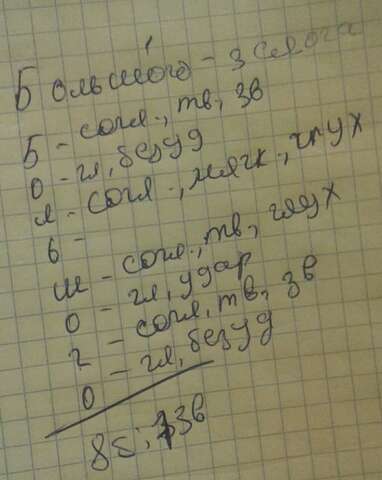 Большо́го - 3 слога
Б - согл., тв, зв
о - гл, безуд
л - согл., мягк., глух
ь -
ш - согл., тв, глух
о - гл, удар
г - согл, тв, зв
о - гл, безуд
8б; 73в